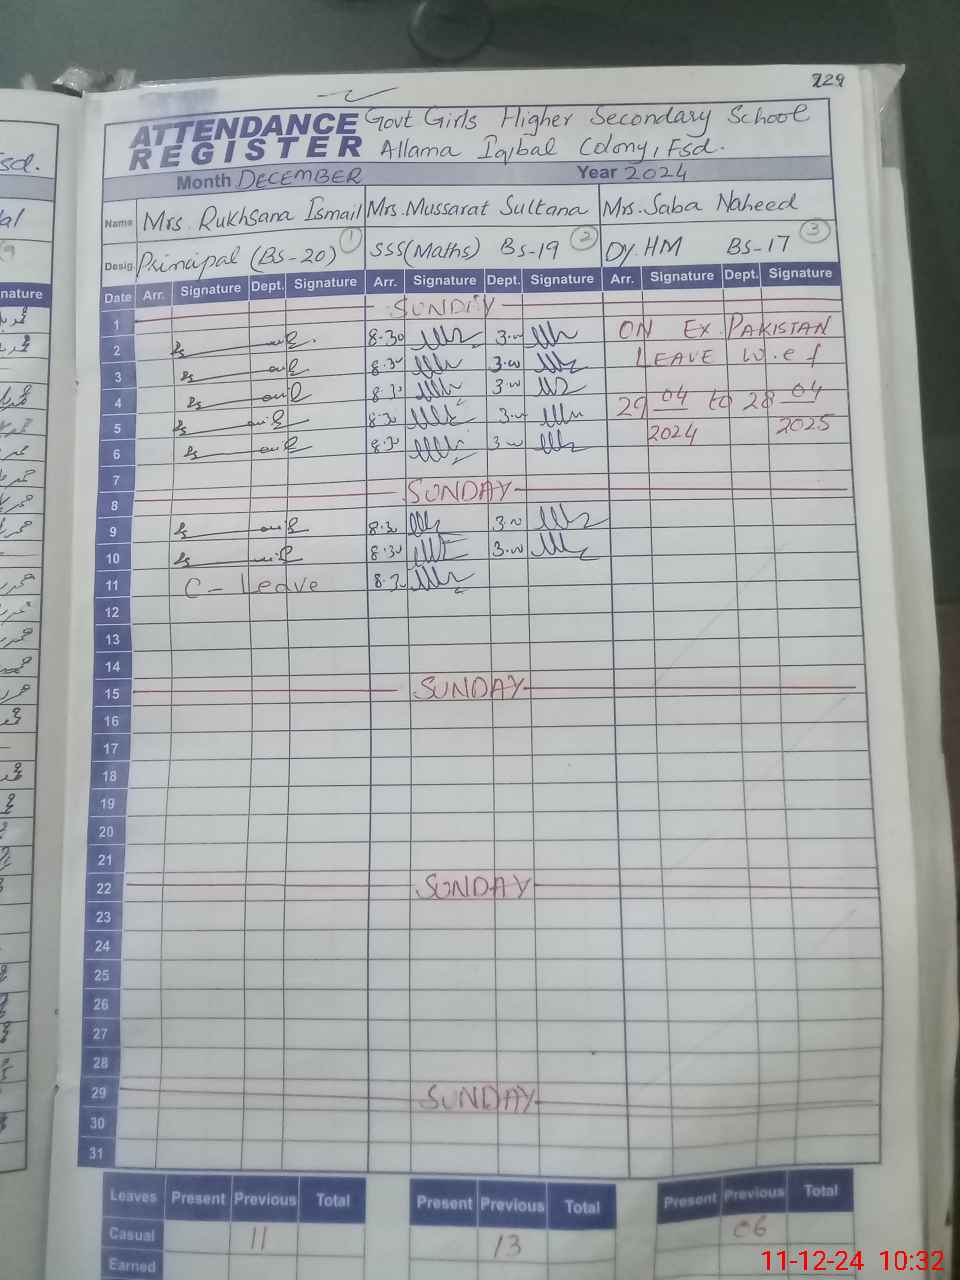 229
ATTENDANCE REGISTER
Govt Girls Higher Secondary School
Allama Iqbal Colony, Fsd.
Month DECEMBER Year 2024
Name Mrs. Rukhsana Ismail Mrs. Mussarat Sultana Mrs. Saba Naheed
Desig. Principal (BS-20) 1 SSS(Maths) BS-19 2 Dy. HM BS-17 3
Date Arr. Signature Dept. Signature Arr. Signature Dept. Signature Arr. Signature Dept. Signature
1 SUNDAY
2 8.30 3.00 ON EX. PAKISTAN
3 8.30 3.00 LEAVE w.e.f
4 8.30 3.00 29 04 to 28 04
5 8.30 3.00 2024 2025
6 8.30 3.00
7
8 SUNDAY
9 8.30 3.00
10 8.30 3.00
11 C-Leave 8.30
12
13
14
15 SUNDAY
16
17
18
19
20
21
22 SUNDAY
23
24
25
26
27
28
29 SUNDAY
30
31
Leaves Present Previous Total Present Previous Total Present Previous Total
Casual 11 13 06
Earned
11-12-24 10:32
sd.
al
nature